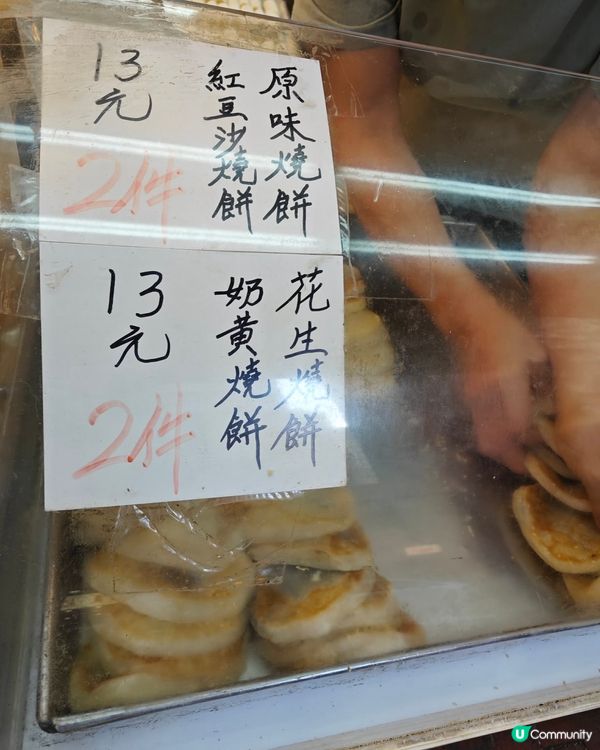 原味燒餅
紅豆沙燒餅
13元
2件
花生燒餅
奶黃燒餅
13元
2件
U Community